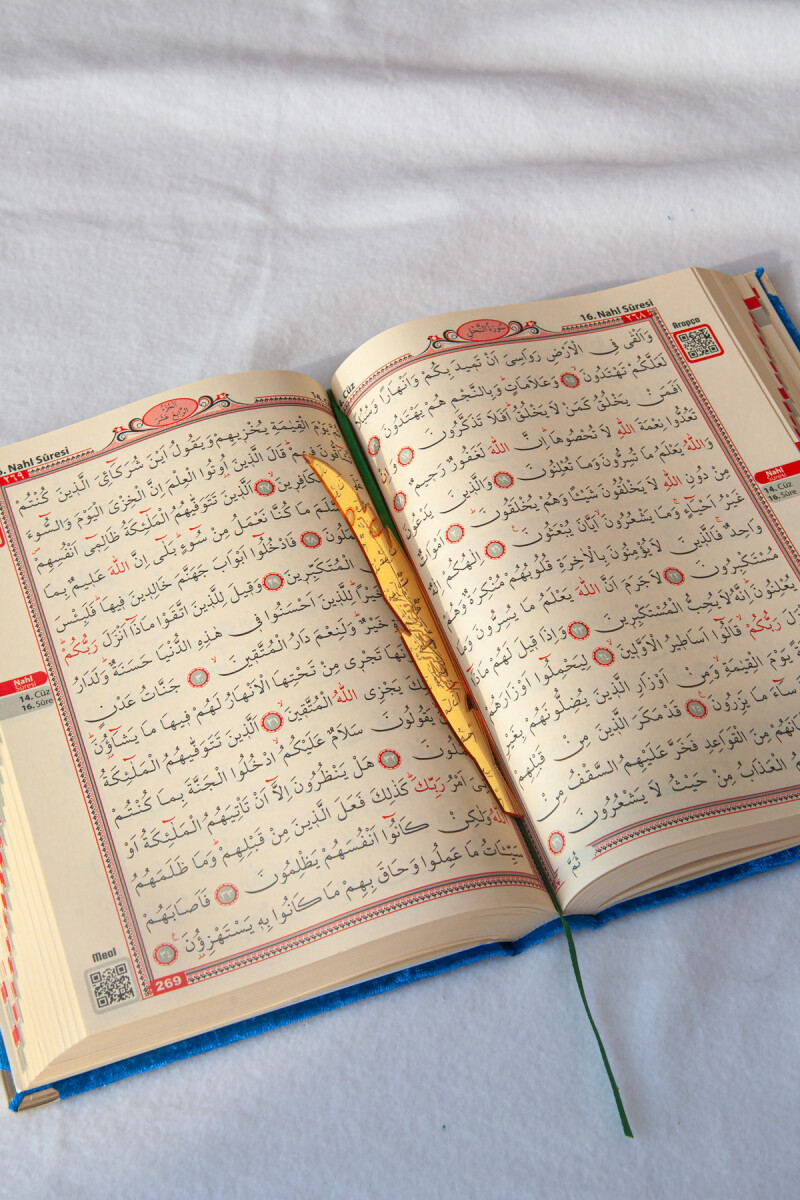 16. Nahl Sûresi
٢٦٨
سُورَةُ النَّحْلِ
Arapça
وَاَلْقٰى فِي الْاَرْضِ رَوَاسِيَ اَنْ تَمِيدَ بِكُمْ وَاَنْهَارًا
لَعَلَّكُمْ تَهْتَدُونَۙ ﴿١٥﴾ وَعَلَامَاتٍۜ وَبِالنَّجْمِ هُمْ يَهْتَدُونَ ﴿١٦﴾
اَفَمَنْ يَخْلُقُ كَمَنْ لَا يَخْلُقُۜ اَفَلَا تَذَكَّرُونَ ﴿١٧﴾ وَاِنْ
تَعُدُّوا نِعْمَةَ اللّٰهِ لَا تُحْصُوهَاۜ اِنَّ اللّٰهَ لَغَفُورٌ رَحِيمٌ ﴿١٨﴾
وَاللّٰهُ يَعْلَمُ مَا تُسِرُّونَ وَمَا تُعْلِنُونَ ﴿١٩﴾ وَالَّذِينَ يَدْعُونَ
مِنْ دُونِ اللّٰهِ لَا يَخْلُقُونَ شَيْـًٔا وَهُمْ يُخْلَقُونَۜ ﴿٢٠﴾ اَمْوَاتٌ
غَيْرُ اَحْيَٓاءٍۚ وَمَا يَشْعُرُونَۙ اَيَّانَ يُبْعَثُونَ۟ ﴿٢١﴾ اِلٰهُكُمْ
وَاحِدٌۚ فَالَّذِينَ لَا يُؤْمِنُونَ بِالْاٰخِرَةِ قُلُوبُهُمْ مُنْكِرَةٌ وَهُمْ
مُسْتَكْبِرُونَ ﴿٢٢﴾ لَا جَرَمَ اَنَّ اللّٰهَ يَعْلَمُ مَا يُسِرُّونَ
يُعْلِنُونَۜ اِنَّهُ لَا يُحِبُّ الْمُسْتَكْبِرِينَ ﴿٢٣﴾ وَاِذَا قِيلَ لَهُمْ مَاذَٓا
رَبُّكُمْۙ قَالُٓوا اَسَاطِيرُ الْاَوَّلِينَۙ ﴿٢٤﴾ لِيَحْمِلُٓوا اَوْزَارَهُمْ
يَوْمَ الْقِيٰمَةِۙ وَمِنْ اَوْزَارِ الَّذِينَ يُضِلُّونَهُمْ بِغَيْرِ
سَٓاءَ مَا يَزِرُونَ۟ ﴿٢٥﴾ قَدْ مَكَرَ الَّذِينَ مِنْ قَبْلِهِمْ
مِنَ الْقَوَاعِدِ فَخَرَّ عَلَيْهِمُ السَّقْفُ مِنْ
الْعَذَابُ مِنْ حَيْثُ لَا يَشْعُرُونَ ﴿٢٦﴾
ثُمَّ
Nahl
Sûresi
14. Cüz
16. Sûre
Nahl Sûresi
٢٦٩
اَلْجُزْءُ الرَّابِعَ عَشَرَ
يَوْمَ الْقِيٰمَةِ يُخْزِيهِمْ وَيَقُولُ اَيْنَ شُرَكَٓاءِيَ الَّذِينَ كُنْتُمْ
فِيهِمْۜ قَالَ الَّذِينَ اُوتُوا الْعِلْمَ اِنَّ الْخِزْيَ الْيَوْمَ وَالسُّٓوءَ
الْكَافِرِينَۙ ﴿٢٧﴾ اَلَّذِينَ تَتَوَفّٰيهُمُ الْمَلٰٓئِكَةُ ظَالِمِٓي اَنْفُسِهِمْۖ
مَا كُنَّا نَعْمَلُ مِنْ سُٓوءٍۜ بَلٰٓى اِنَّ اللّٰهَ عَلِيمٌ بِمَا
﴿٢٨﴾ فَادْخُلُٓوا اَبْوَابَ جَهَنَّمَ خَالِدِينَ فِيهَاۜ فَلَبِئْسَ
الْمُتَكَبِّرِينَ ﴿٢٩﴾ وَقِيلَ لِلَّذِينَ اتَّقَوْا مَاذَٓا اَنْزَلَ رَبُّكُمْۜ
خَيْرًاۜ لِلَّذِينَ اَحْسَنُوا فِي هٰذِهِ الدُّنْيَا حَسَنَةٌۜ وَلَدَارُ
خَيْرٌۜ وَلَنِعْمَ دَارُ الْمُتَّقِينَۙ ﴿٣٠﴾ جَنَّاتُ عَدْنٍ
تَجْرِي مِنْ تَحْتِهَا الْاَنْهَارُ لَهُمْ فِيهَا مَا يَشَٓاؤُ۫نَۜ
يَجْزِي اللّٰهُ الْمُتَّقِينَۙ ﴿٣١﴾ اَلَّذِينَ تَتَوَفّٰيهُمُ الْمَلٰٓئِكَةُ
يَقُولُونَ سَلَامٌ عَلَيْكُمُۙ ادْخُلُوا الْجَنَّةَ بِمَا كُنْتُمْ
﴿٣٢﴾ هَلْ يَنْظُرُونَ اِلَّٓا اَنْ تَأْتِيَهُمُ الْمَلٰٓئِكَةُ اَوْ
اَمْرُ رَبِّكَۜ كَذٰلِكَ فَعَلَ الَّذِينَ مِنْ قَبْلِهِمْۜ وَمَا ظَلَمَهُمُ
اللّٰهُ وَلٰكِنْ كَانُٓوا اَنْفُسَهُمْ يَظْلِمُونَ ﴿٣٣﴾ فَاَصَابَهُمْ
سَيِّـَٔاتُ مَا عَمِلُوا وَحَاقَ بِهِمْ مَا كَانُوا بِهِ يَسْتَهْزِؤُ۫نَ۟ ﴿٣٤﴾
Nahl
Sûresi
14. Cüz
16. Sûre
Meal
269